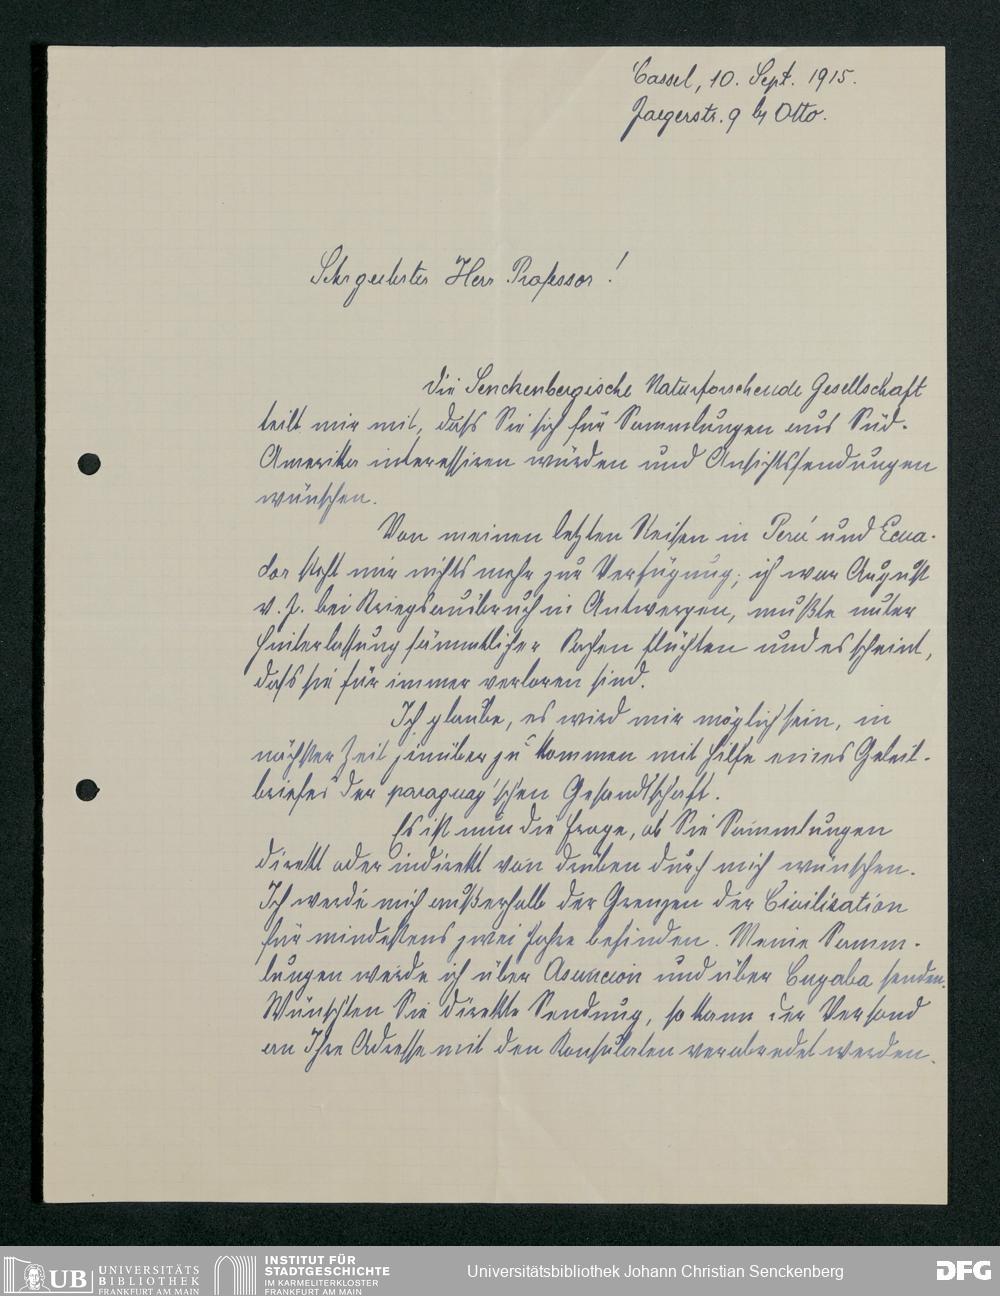 Cassel, 10. Sept. 1915.
Jaegerstr. 9 b/ Otto.
Sehr geehrter Herr Professor!
Die Senckenbergische Naturforschende Gesellschaft
teilt mir mit, daß Sie sich für Sammlungen aus Süd-
Amerika interessiren würden und Ansichtssendungen
wünschen.
Von meinen letzten Reisen in Perú und Ecua-
dor steht mir nichts mehr zur Verfügung; ich war August
v. J. bei Kriegsausbruch in Antwerpen, mußte unter
Hinterlassung sämmtlicher Sachen flüchten und es scheint,
daß sie für immer verloren sind.
Ich glaube, es wird mir möglich sein, in
nächster Zeit hinüber zu kommen mit Hilfe eines Geleit-
briefes der paraguay'schen Gesandtschaft.
Es ist nun die Frage, ob Sie Sammlungen
direkt oder indirekt von drüben durch mich wünschen.
Ich werde mich außerhalb der Grenzen der Civilisation
für mindestens zwei Jahre befinden. Meine Samm-
lungen werde ich über Asuncion und über Cuyaba senden.
Wünschten Sie direkte Sendung, so kann der Versand
an Ihre Adresse mit den Konsulaten verabredet werden.
UB UNIVERSITÄTS
BIBLIOTHEK
FRANKFURT AM MAIN
INSTITUT FÜR
STADTGESCHICHTE
IM KARMELITERKLOSTER
FRANKFURT AM MAIN
Universitätsbibliothek Johann Christian Senckenberg
DFG